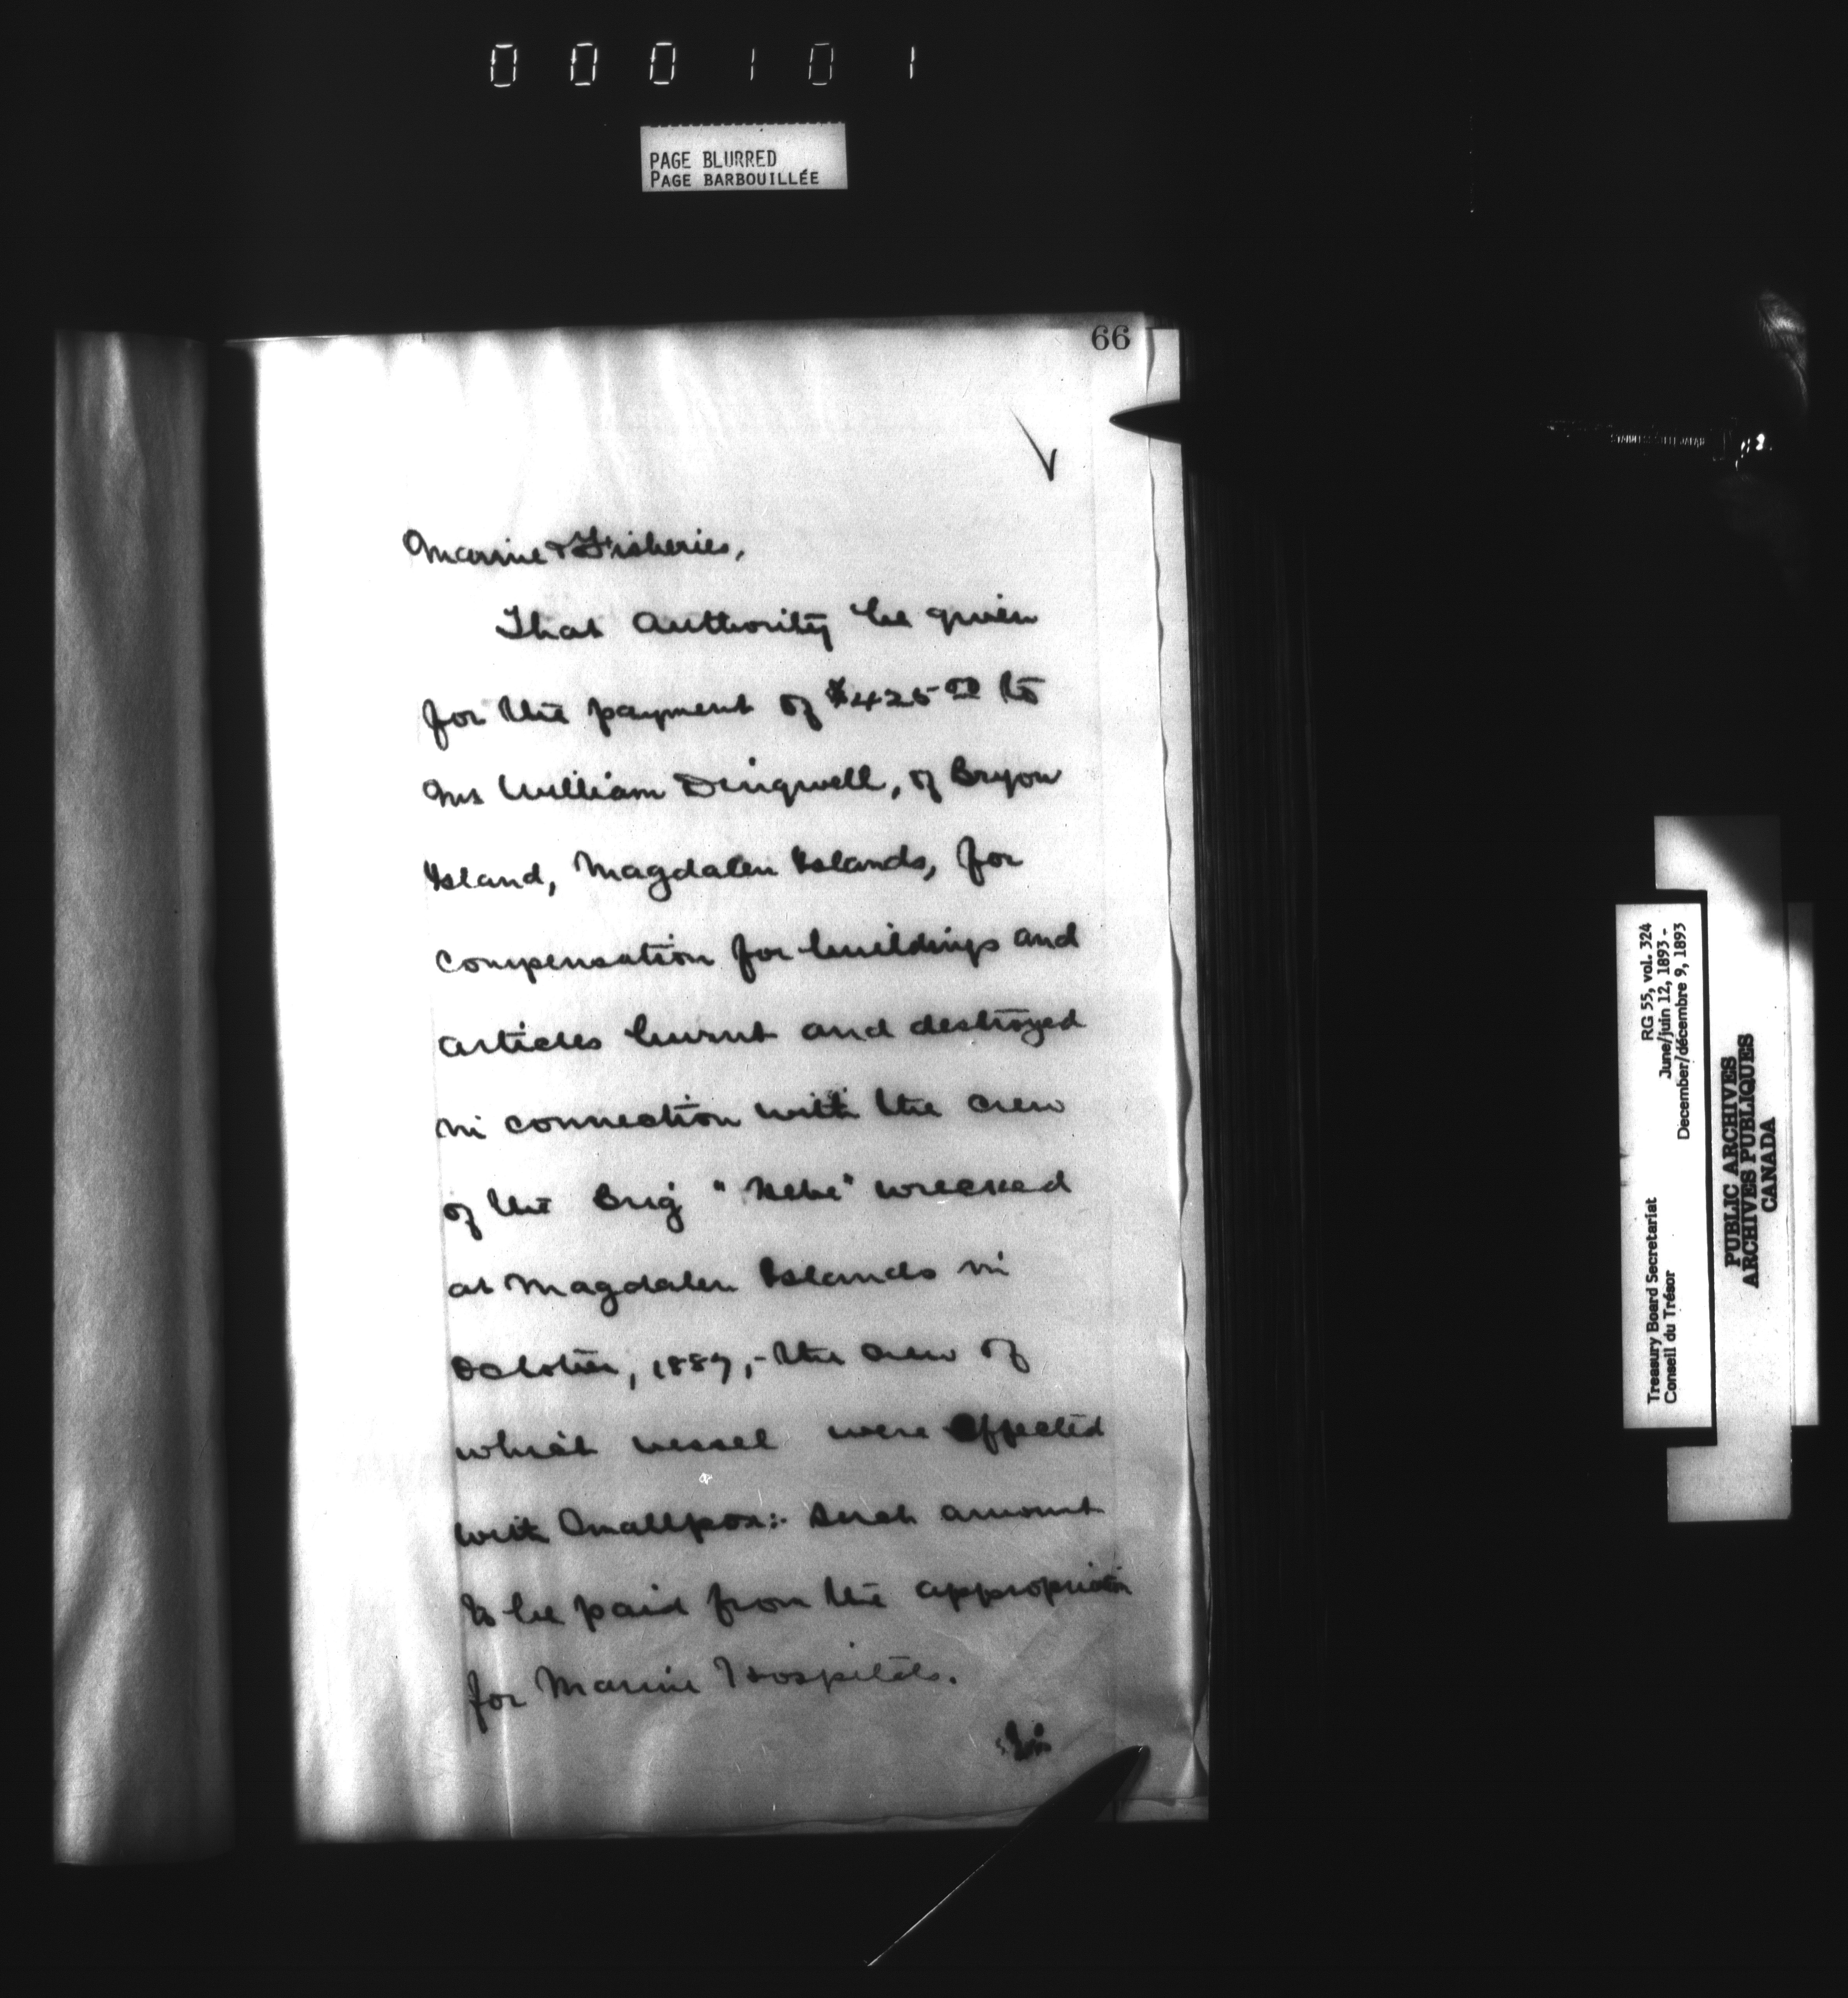 000101
PAGE BLURRED
PAGE BARBOUILLÉE
66
Marine & Fisheries,
That Authority be given
for the payment of $425 00 to
Mr William Dingwell, of Bryon
Island, Magdalen Islands, for
compensation for buildings and
articles burnt and destroyed
in connection with the crew
of the Brig " " wrecked
at Magdalen Islands in
October, 1887,- the crew of
which vessel were affected
with Smallpox:- Such amount
to be paid from the appropriation
for Marine Hospitals.
Treasury Board Secretariat
Conseil du Trésor
RG 55, vol. 324
June/juin 12, 1893 -
December/décembre 9, 1893
PUBLIC ARCHIVES
ARCHIVES PUBLIQUES
CANADA